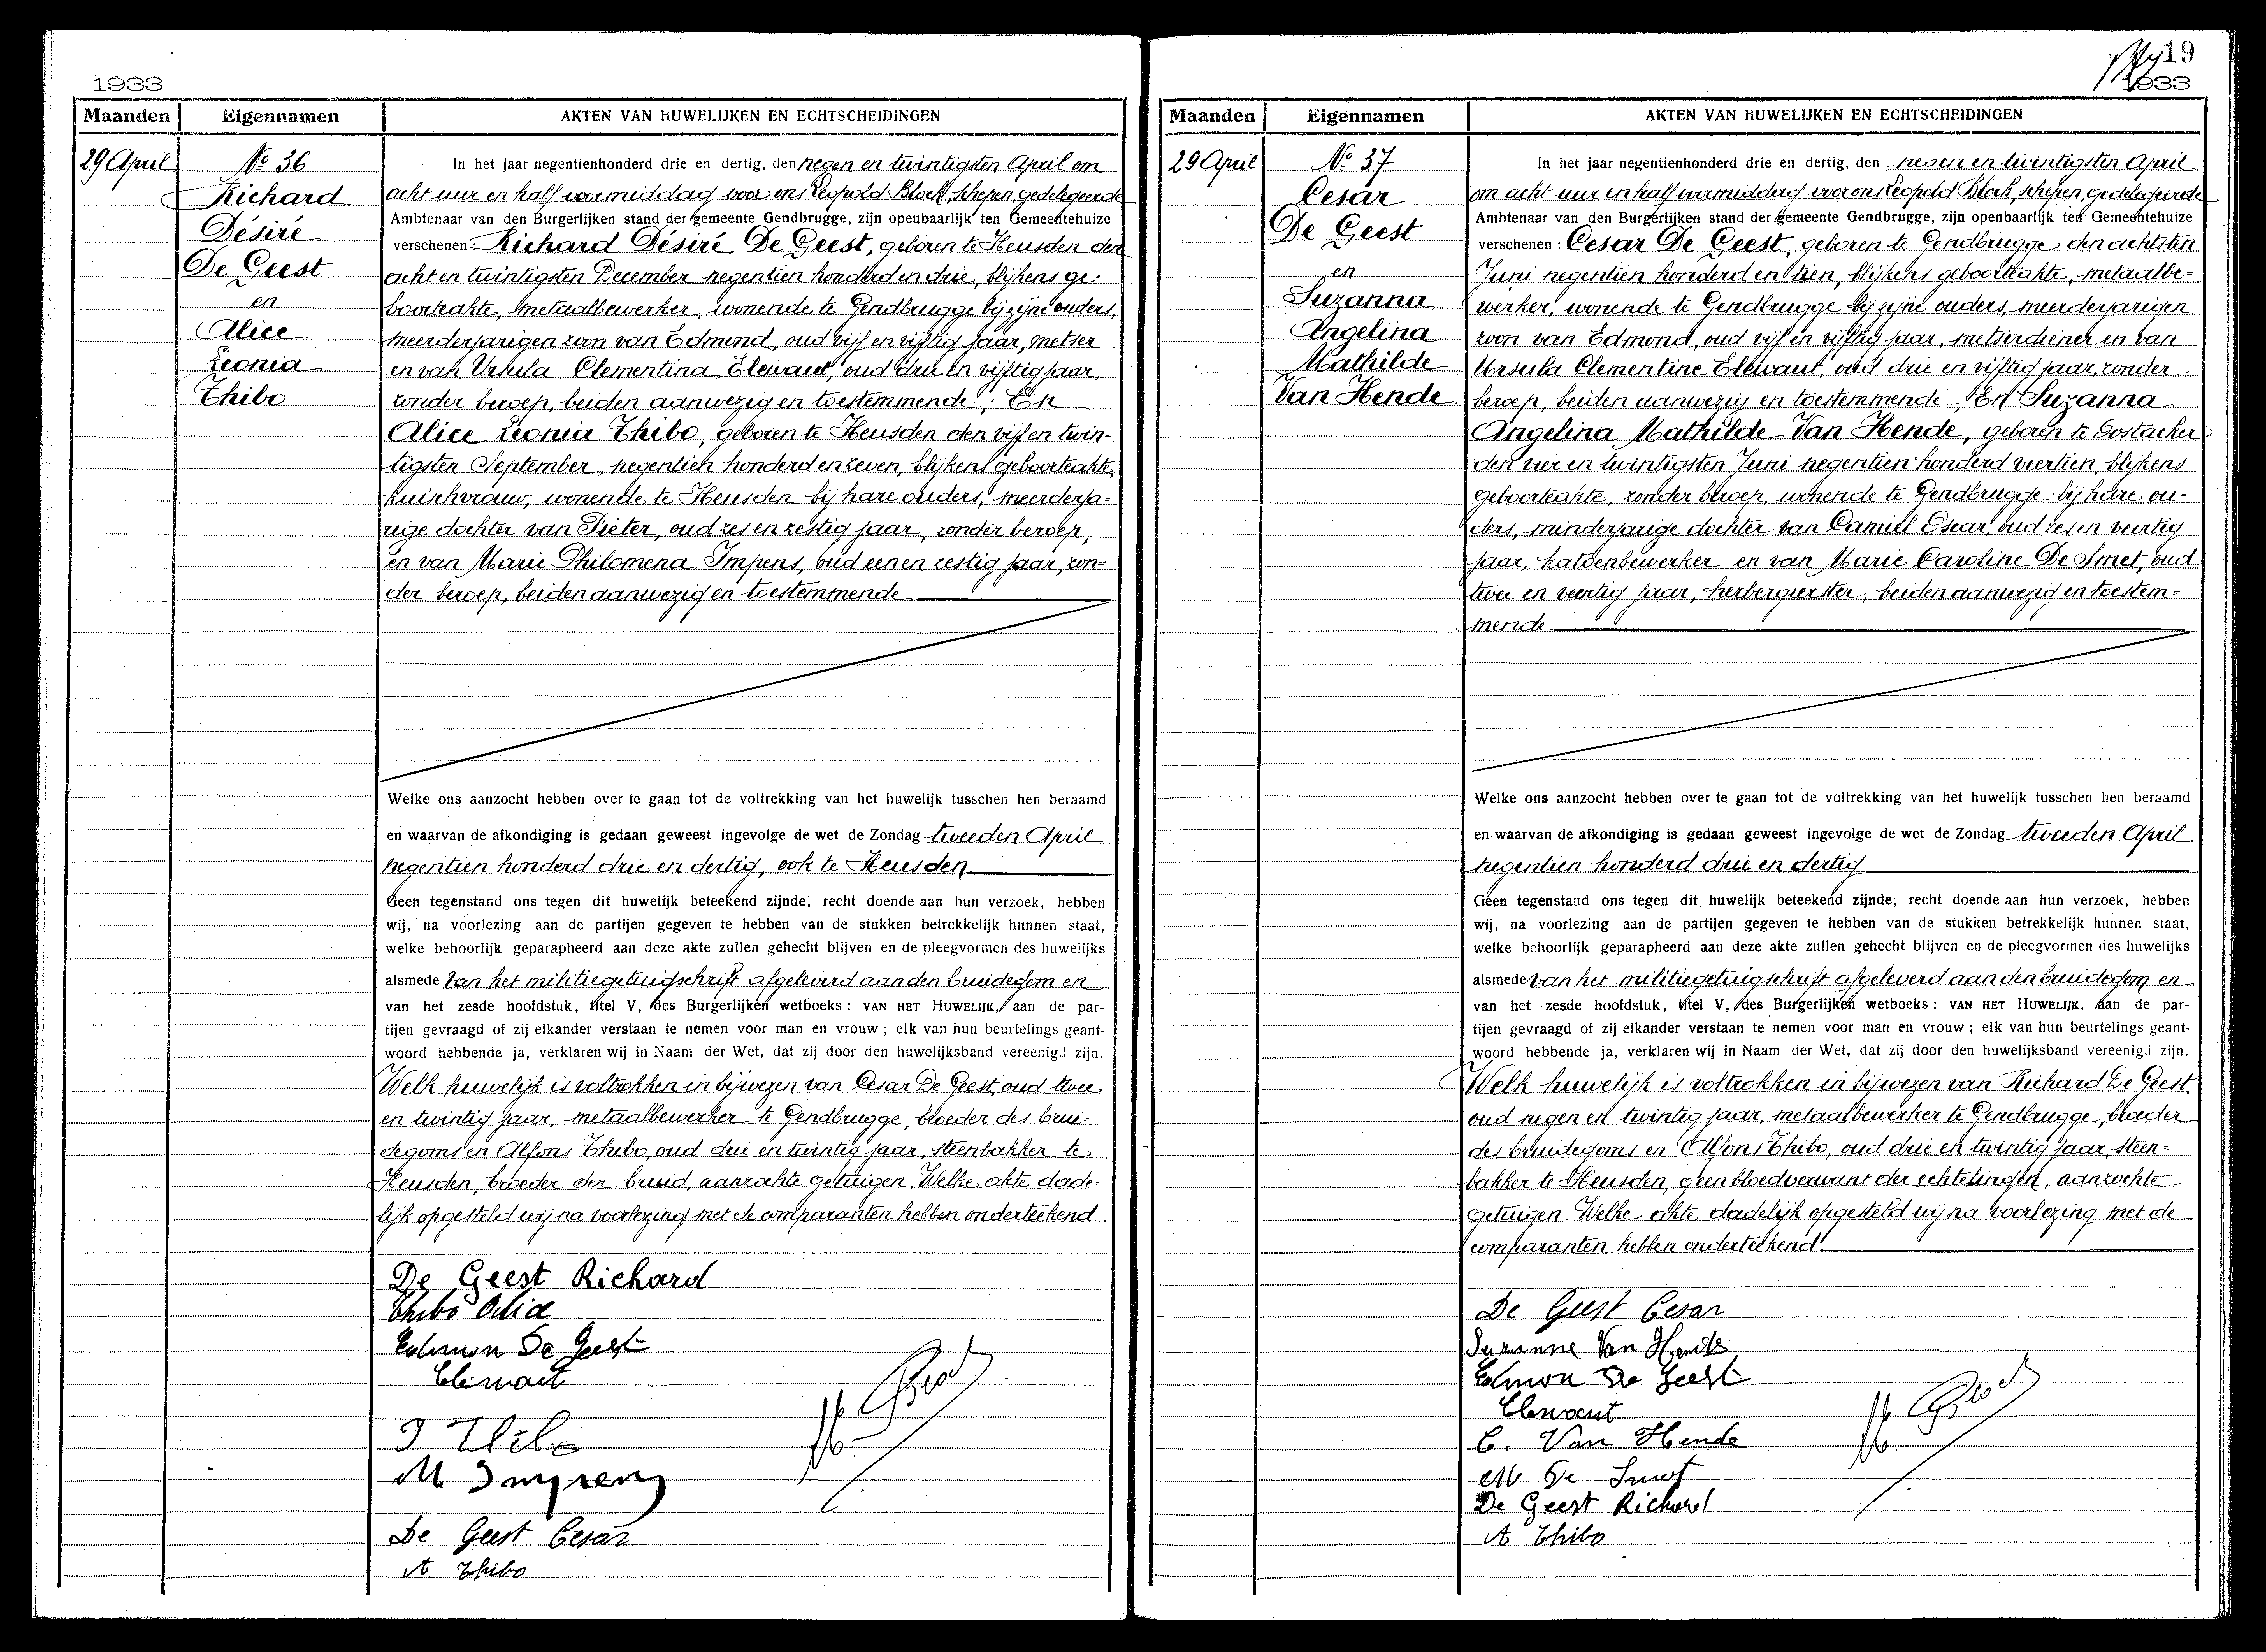 1933
Maanden Eigennamen AKTEN VAN HUWELIJKEN EN ECHTSCHEIDINGEN
29 April
No 36
Richard
Désiré
De Geest
en
Alice
Leonia
Thibo
In het jaar negentienhonderd drie en dertig, den negen en twintigsten April om
acht uur en half voormiddag voor ons Leopold Block, schepen, gedelegeerde
Ambtenaar van den Burgerlijken stand der gemeente Gendbrugge, zijn openbaarlijk ten Gemeentehuize
verschenen: Richard Désiré De Geest, geboren te Heusden den
acht en twintigsten December negentien honderd en drie, blijkens ge-
boorteakte, metaalbewerker, wonende te Gendbrugge bij zijne ouders,
meerderjarigen zoon van Edmond, oud vijf en vijftig jaar, metser
en van Ursula Clementina Elewaut, oud drie en vijftig jaar,
zonder beroep, beiden aanwezig en toestemmende; En
Alice Leonia Thibo, geboren te Heusden den vijf en twin-
tigsten September negentien honderd en zeven, blijkens geboorteakte,
huishvrouw, wonende te Heusden bij hare ouders, meerderja-
rige dochter van Pieter, oud zes en zestig jaar, zonder beroep,
en van Marie Philomena Impens, oud een en zestig jaar, zon-
der beroep, beiden aanwezig en toestemmende
Welke ons aanzocht hebben over te gaan tot de voltrekking van het huwelijk tusschen hen beraamd
en waarvan de afkondiging is gedaan geweest ingevolge de wet de Zondag tweeden April
negentien honderd drie en dertig, ook te Heusden
Geen tegenstand ons tegen dit huwelijk beteekend zijnde, recht doende aan hun verzoek, hebben
wij, na voorlezing aan de partijen gegeven te hebben van de stukken betrekkelijk hunnen staat,
welke behoorlijk geparapheerd aan deze akte zullen gehecht blijven en de pleegvormen des huwelijks
alsmede van het militiegetuigschrift afgeleverd aan den bruidegom en
van het zesde hoofdstuk, titel V, des Burgerlijken wetboeks: VAN HET HUWELIJK, aan de par-
tijen gevraagd of zij elkander verstaan te nemen voor man en vrouw; elk van hun beurtelings geant-
woord hebbende ja, verklaren wij in Naam der Wet, dat zij door den huwelijksband vereenigd zijn.
Welk huwelijk is voltrokken in bijwezen van Cesar De Geest, oud twee
en twintig jaar, metaalbewerker te Gendbrugge, broeder des brui-
degoms en Alfons Thibo, oud drie en twintig jaar, steenbakker te
Heusden, broeder der bruid, aanzochte getuigen. Welke akte dade-
lijk opgesteld wij na voorlezing met de comparanten hebben onderteekend.
De Geest Richard
Thibo Alice
Edmon De Geest
Elewaut
P Thibo
M Impens
De Geest Cesar
A Thibo
19
1933
Maanden Eigennamen AKTEN VAN HUWELIJKEN EN ECHTSCHEIDINGEN
29 April
No 37
Cesar
De Geest
en
Suzanna
Angelina
Mathilde
Van Hende
In het jaar negentienhonderd drie en dertig, den negen en twintigsten April
om acht uur en half voormiddag voor ons Leopold Block, schepen, gedelegeerde
Ambtenaar van den Burgerlijken stand der gemeente Gendbrugge, zijn openbaarlijk ten Gemeentehuize
verschenen: Cesar De Geest, geboren te Gendbrugge den achtsten
Juni negentien honderd en tien, blijkens geboorteakte, metaalbe-
werker, wonende te Gendbrugge bij zijne ouders, meerderjarigen
zoon van Edmond, oud vijf en vijftig jaar, metserdiener en van
Ursula Clementine Elewaut, oud drie en vijftig jaar, zonder
beroep, beiden aanwezig en toestemmende. En Suzanna
Angelina Mathilde Van Hende, geboren te Oostacker
den vier en twintigsten Juni negentien honderd veertien, blijkens
geboorteakte, zonder beroep, wonende te Gendbrugge bij hare ou-
ders, minderjarige dochter van Camill Cesar, oud zes en veertig
jaar, katoenbewerker en van Marie Caroline De Smet, oud
twee en veertig jaar, herbergierster, beiden aanwezig en toestem-
mende
Welke ons aanzocht hebben over te gaan tot de voltrekking van het huwelijk tusschen hen beraamd
en waarvan de afkondiging is gedaan geweest ingevolge de wet de Zondag tweeden April
negentien honderd drie en dertig
Geen tegenstand ons tegen dit huwelijk beteekend zijnde, recht doende aan hun verzoek, hebben
wij, na voorlezing aan de partijen gegeven te hebben van de stukken betrekkelijk hunnen staat,
welke behoorlijk geparapheerd aan deze akte zullen gehecht blijven en de pleegvormen des huwelijks
alsmede van het militiegetuigschrift afgeleverd aan den bruidegom en
van het zesde hoofdstuk, titel V, des Burgerlijken wetboeks: VAN HET HUWELIJK, aan de par-
tijen gevraagd of zij elkander verstaan te nemen voor man en vrouw; elk van hun beurtelings geant-
woord hebbende ja, verklaren wij in Naam der Wet, dat zij door den huwelijksband vereenigd zijn.
Welk huwelijk is voltrokken in bijwezen van Richard De Geest,
oud negen en twintig jaar, metaalbewerker te Gendbrugge, broeder
des bruidegoms en Alfons Thibo, oud drie en twintig jaar, steen-
bakker te Heusden, geen bloedverwant der echtelingen, aanzochte
getuigen. Welke akte dadelijk opgesteld wij na voorlezing met de
comparanten hebben onderteekend.
De Geest Cesar
Suzanne Van Hende
Edmon De Geest
Elewaut
C. Van Hende
M De Smet
De Geest Richard
A Thibo